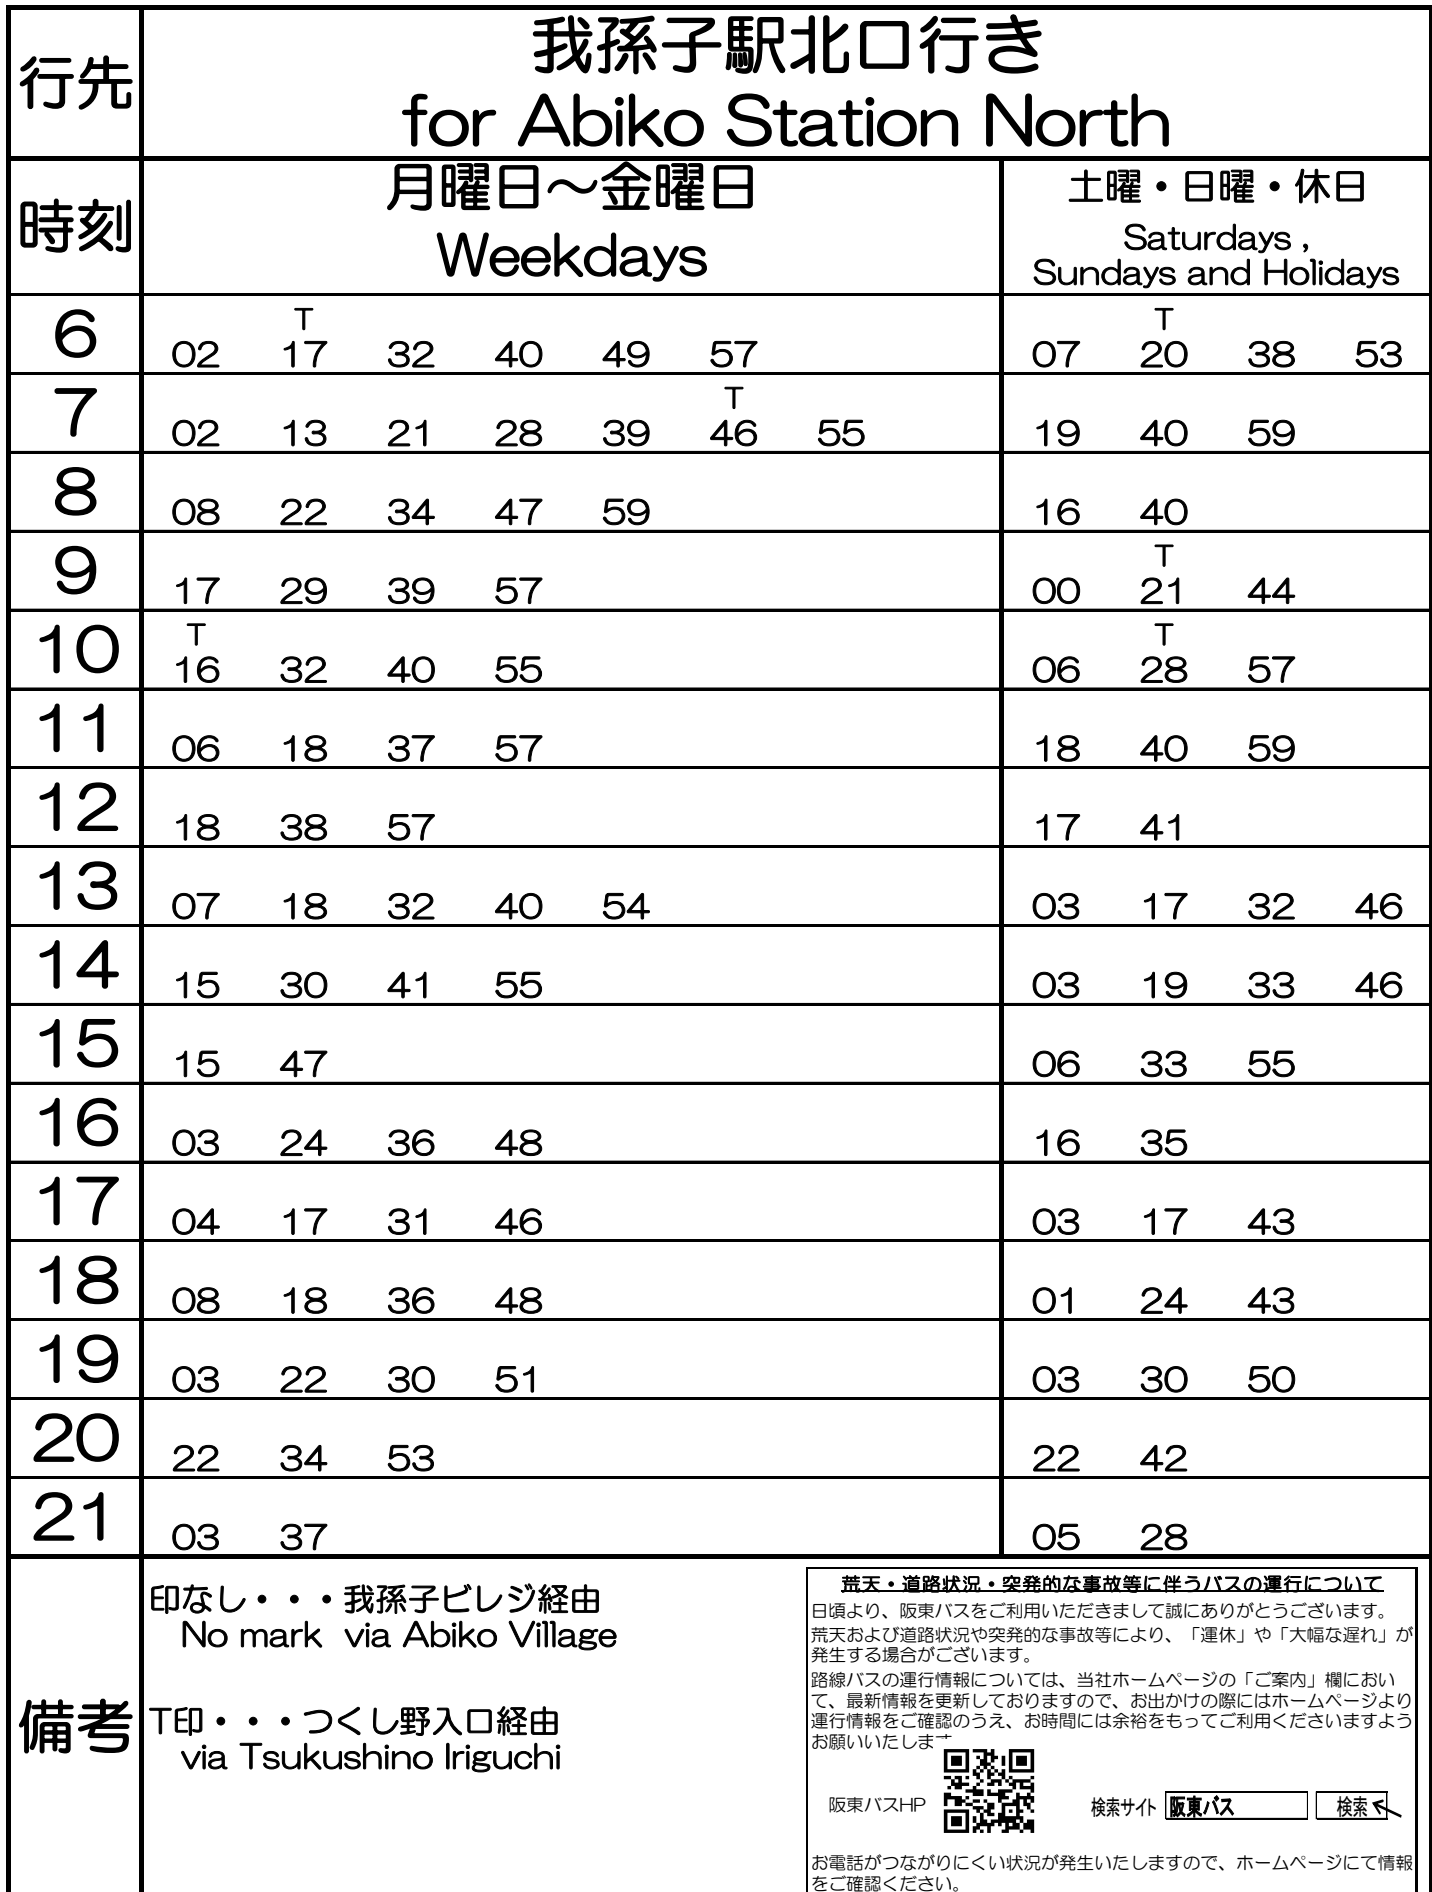 行先
我孫子駅北口行き
for Abiko Station North
時刻
月曜日～金曜日
Weekdays
土曜・日曜・休日
Saturdays ,
Sundays and Holidays
T T
6 02 17 32 40 49 57 07 20 38 53
T
7 02 13 21 28 39 46 55 19 40 59
8 08 22 34 47 59 16 40
T
9 17 29 39 57 00 21 44
T T
10 16 32 40 55 06 28 57
11 06 18 37 57 18 40 59
12 18 38 57 17 41
13 07 18 32 40 54 03 17 32 46
14 15 30 41 55 03 19 33 46
15 15 47 06 33 55
16 03 24 36 48 16 35
17 04 17 31 46 03 17 43
18 08 18 36 48 01 24 43
19 03 22 30 51 03 30 50
20 22 34 53 22 42
21 03 37 05 28
備考
印なし・・・我孫子ビレジ経由
No mark via Abiko Village
T印・・・つくし野入口経由
via Tsukushino Iriguchi
荒天・道路状況・突発的な事故等に伴うバスの運行について
日頃より、阪東バスをご利用いただきまして誠にありがとうございます。
荒天および道路状況や突発的な事故等により、「運休」や「大幅な遅れ」が
発生する場合がございます。
路線バスの運行情報については、当社ホームページの「ご案内」欄におい
て、最新情報を更新しておりますので、お出かけの際にはホームページより
運行情報をご確認のうえ、お時間には余裕をもってご利用くださいますよう
お願いいたします
阪東バスHP
検索サイト 阪東バス 検索
お電話がつながりにくい状況が発生いたしますので、ホームページにて情報
をご確認ください。